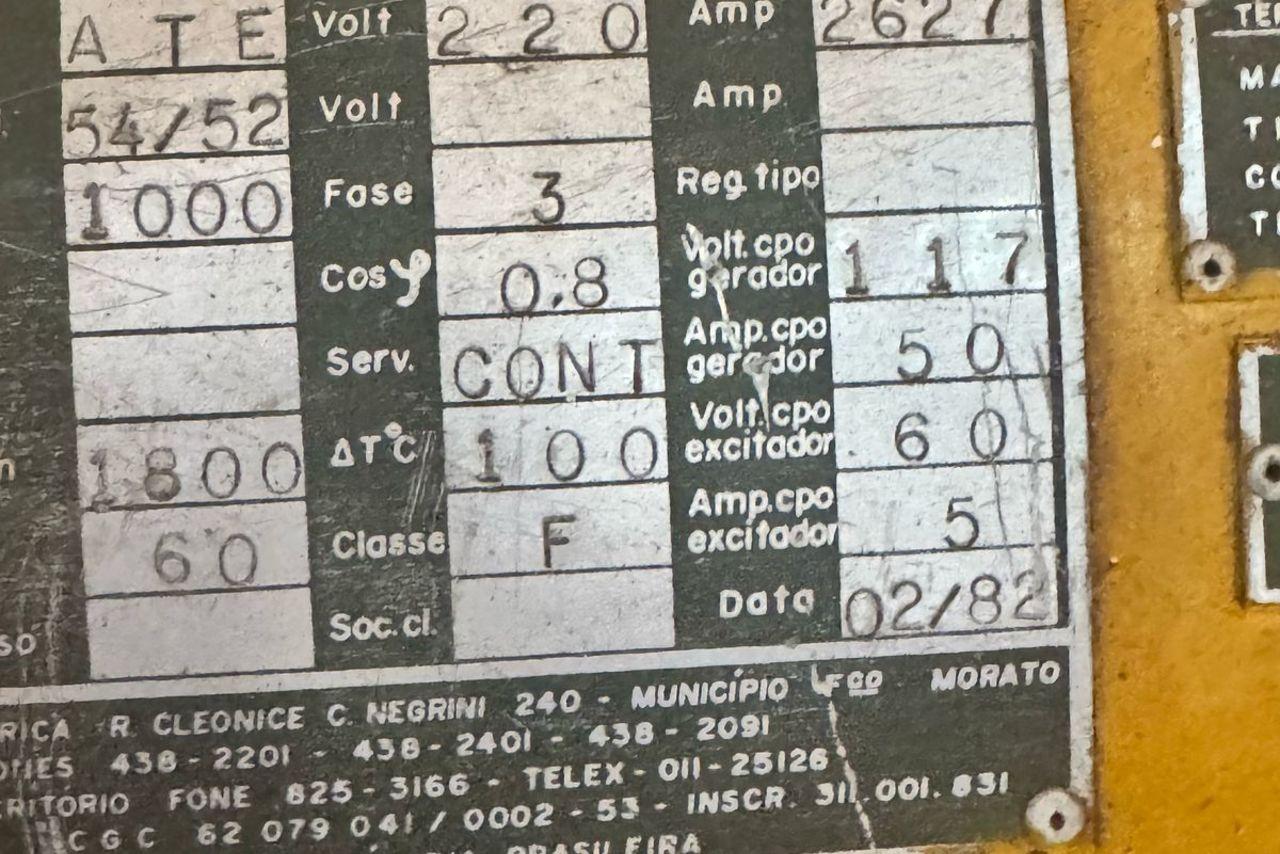 ATE Volt 220 Amp 2627
54/52 Volt Amp
1000 Fase 3 Reg. tipo
Cosφ 0.8 Volt. cpo gerador 117
Serv. CONT Amp. cpo gerador 50
1800 ΔT°C 100 Volt. cpo excitador 60
60 Classe F Amp. cpo excitador 5
SO Soc. cl. Data 02/82
RICA R. CLEONICE C. NEGRINI 240 - MUNICÍPIO Fco MORATO
ONES 438-2201 - 438-2401 - 438-2091
RITORIO FONE 825-3166 - TELEX - 011-25126
C G C 62 079 041/0002-53 - INSCR. 311.001.831
BRASILEIRA
TE
MA
T
CO
T